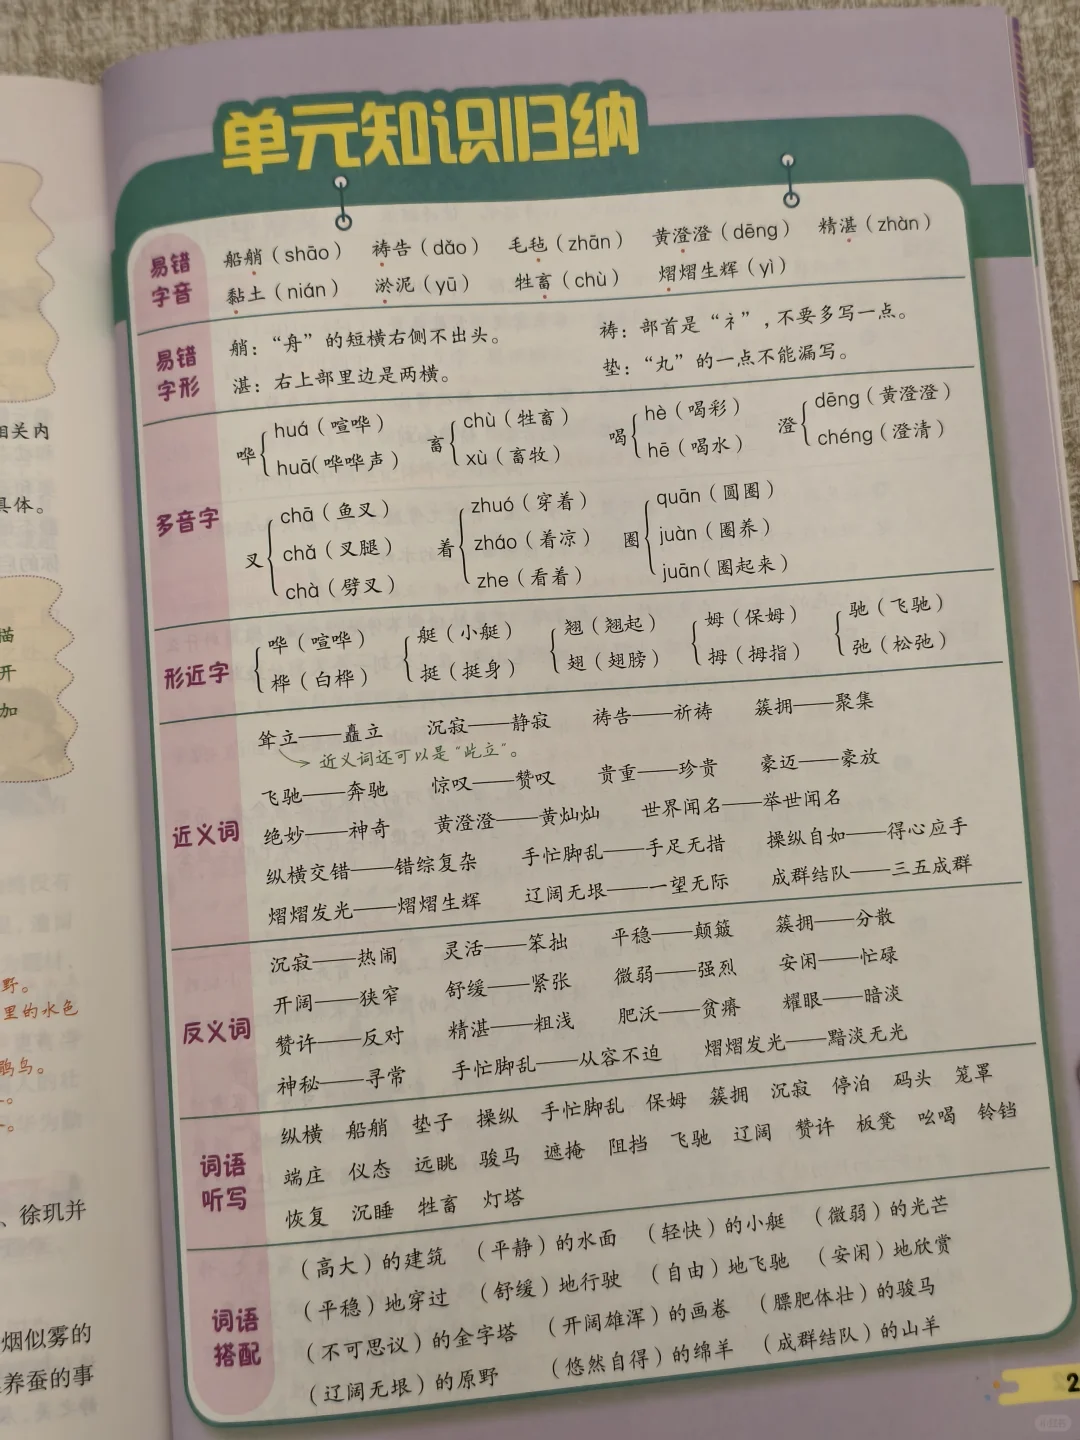 单元知识归纳
易错字音
船艄（shāo） 祷告（dǎo） 毛毡（zhān） 黄澄澄（dēng） 精湛（zhàn）
黏土（nián） 淤泥（yū） 牲畜（chù） 熠熠生辉（yì）
易错字形
艄：“舟”的短横右侧不出头。 祷：部首是“礻”，不要多写一点。
湛：右上部里边是两横。 垫：“丸”的一点不能漏写。
多音字
哗 huá（喧哗） huā（哗哗声）
畜 chù（牲畜） xù（畜牧）
喝 hè（喝彩） hē（喝水）
澄 dēng（黄澄澄） chéng（澄清）
叉 chā（鱼叉） chǎ（叉腿） chà（劈叉）
着 zhuó（穿着） zháo（着凉） zhe（看着）
圈 quān（圆圈） juàn（圈养） juān（圈起来）
形近字
哗（喧哗） 艇（小艇） 翘（翘起） 姆（保姆） 驰（飞驰）
桦（白桦） 挺（挺身） 翅（翅膀） 拇（拇指） 弛（松弛）
近义词
耸立——矗立 沉寂——静寂 祷告——祈祷 簇拥——聚集
近义词还可以是“屹立”。
飞驰——奔驰 惊叹——赞叹 贵重——珍贵 豪迈——豪放
绝妙——神奇 黄澄澄——黄灿灿 世界闻名——举世闻名
纵横交错——错综复杂 手忙脚乱——手足无措 操纵自如——得心应手
熠熠发光——熠熠生辉 辽阔无垠——一望无际 成群结队——三五成群
反义词
沉寂——热闹 灵活——笨拙 平稳——颠簸 簇拥——分散
开阔——狭窄 舒缓——紧张 微弱——强烈 安闲——忙碌
赞许——反对 精湛——粗浅 肥沃——贫瘠 耀眼——暗淡
神秘——寻常 手忙脚乱——从容不迫 熠熠发光——黯淡无光
词语听写
纵横 船艄 垫子 操纵 手忙脚乱 保姆 簇拥 沉寂 停泊 码头 笼罩
端庄 仪态 远眺 骏马 遮掩 阻挡 飞驰 辽阔 赞许 板凳 吆喝 铃铛
恢复 沉睡 牲畜 灯塔
词语搭配
（高大）的建筑 （平静）的水面 （轻快）的小艇 （微弱）的光芒
（平稳）地穿过 （舒缓）地行驶 （自由）地飞驰 （安闲）地欣赏
（不可思议）的金字塔 （开阔雄浑）的画卷 （膘肥体壮）的骏马
（辽阔无垠）的原野 （悠然自得）的绵羊 （成群结队）的山羊
相关内
具体。
描
开
加
野。
里的水色
鹃鸟。
、徐玑并
烟似雾的
养蚕的事
2